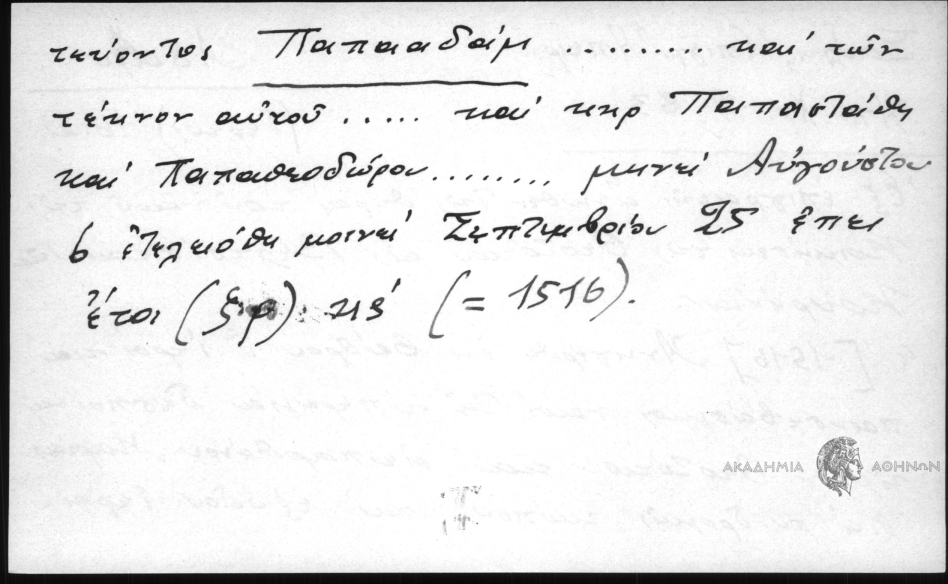 τεύοντος Παπααδάμ .......... καί τῶν
τέκνον αὐτοῦ ..... καί κηρ Παπαστάθη
καί Παπαθεοδώρου ........ μηνεί Αὐγούστου
6 ἐτελειόθη μοινεί Σεπτεμβρίου 25 ἔπει
ἔτοι (ξφ) κέ (= 1516).
ΑΚΑΔΗΜΙΑ ΑΘΗΝΩΝ